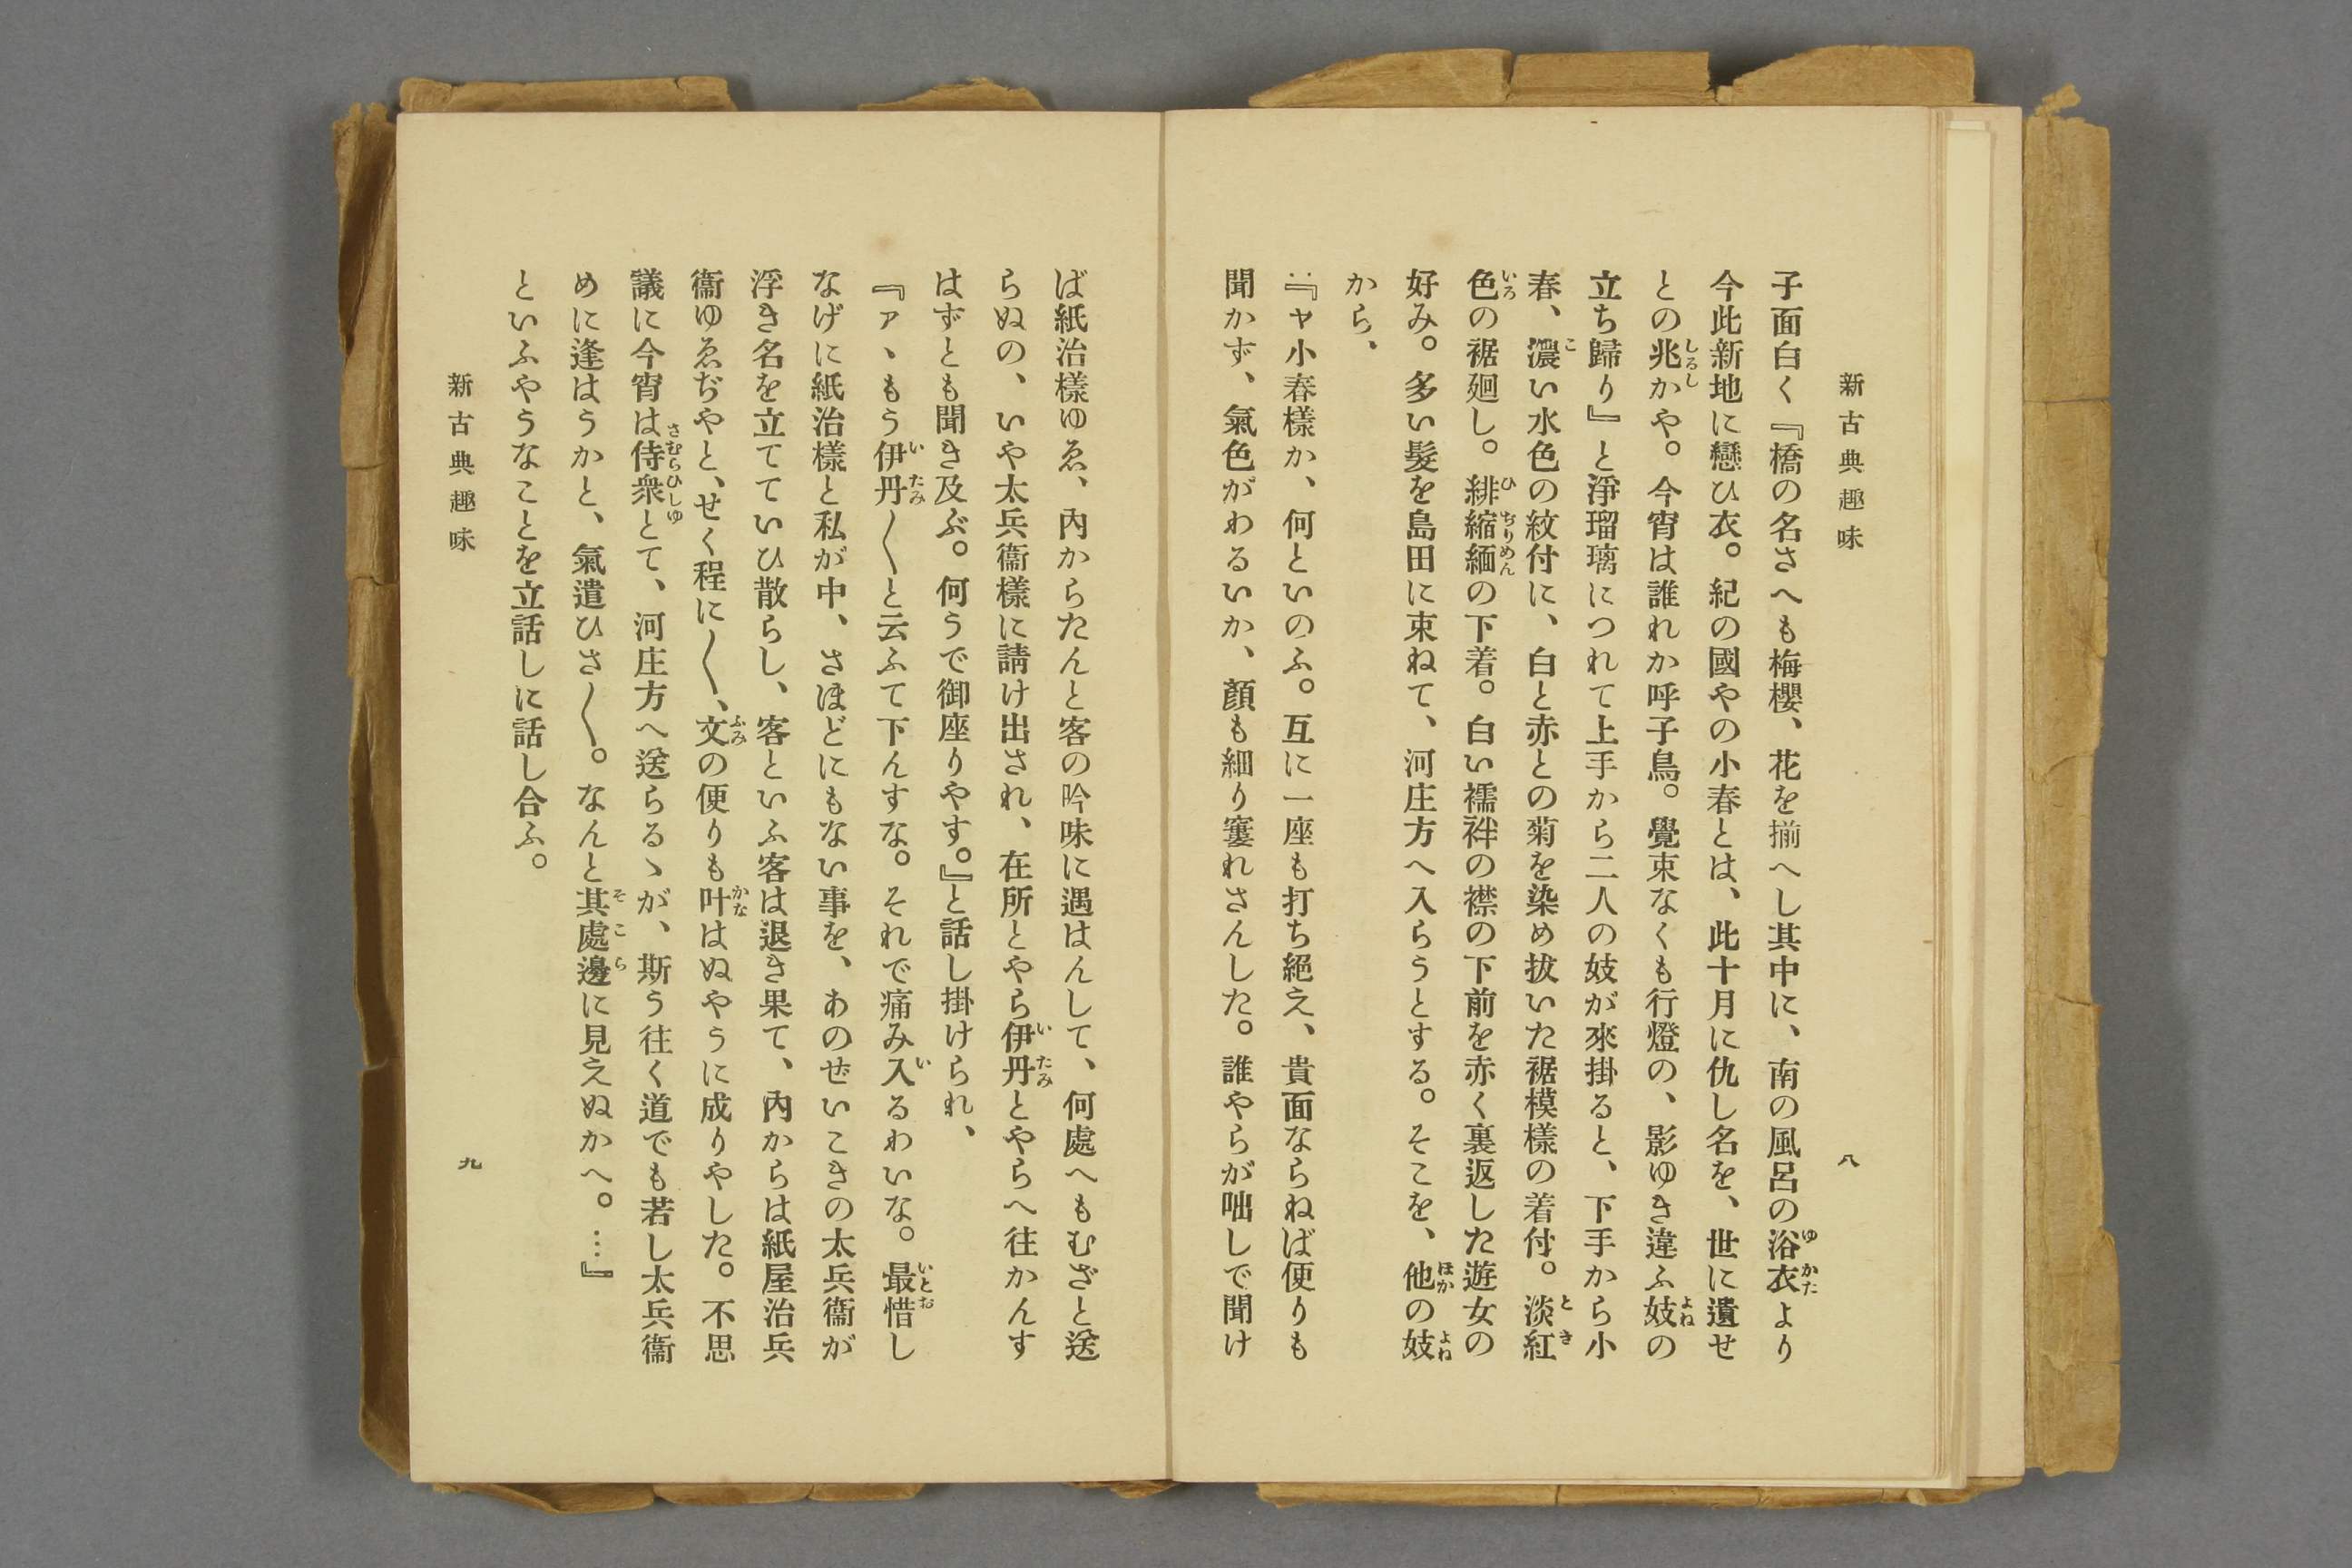 新古典趣味
八
子面白く『橋の名さへも梅櫻、花を揃へし其中に、南の風呂の浴衣より
今此新地に戀ひ衣。紀の國やの小春とは、此十月に仇し名を、世に遺せ
との兆かや。今宵は誰れか呼子鳥。覺束なくも行燈の、影ゆき違ふ妓の
立ち歸り』と淨瑠璃につれて上手から二人の妓が來掛ると、下手から小
春、濃い水色の紋付に、白と赤との菊を染め拔いた裾模樣の着付。淡紅
色の裾廻し。緋縮緬の下着。白い襦袢の襟の下前を赤く裏返した遊女の
好み。多い髮を島田に束ねて、河庄方へ入らうとする。そこを、他の妓
から、
『‥ヤ小春樣か、何といのふ。互に一座も打ち絕え、貴面ならねば便りも
聞かず、氣色がわるいか、顏も細り窶れさんした。誰やらが咄しで聞け
ば紙治樣ゆゑ、內からたんと客の吟味に遇はんして、何處へもむざと送
らぬの、いや太兵衞樣に請け出され、在所とやら伊丹とやらへ往かんす
はずとも聞き及ぶ。何うで御座りやす。』と話し掛けられ、
『アヽもう伊丹〱と云ふて下んすな。それで痛み入るわいな。最惜し
なげに紙治樣と私が中、さほどにもない事を、あのぜいこきの太兵衞が
浮き名を立てていひ散らし、客といふ客は退き果て、內からは紙屋治兵
衞ゆゑぢやと、せく程に〱、文の便りも叶はぬやうに成りやした。不思
議に今宵は侍衆とて、河庄方へ送らるゝが、斯う往く道でも若し太兵衞
めに逢はうかと、氣遣ひさ〱。なんと其處邊に見えぬかへ。…』
といふやうなことを立話しに話し合ふ。
新古典趣味
九